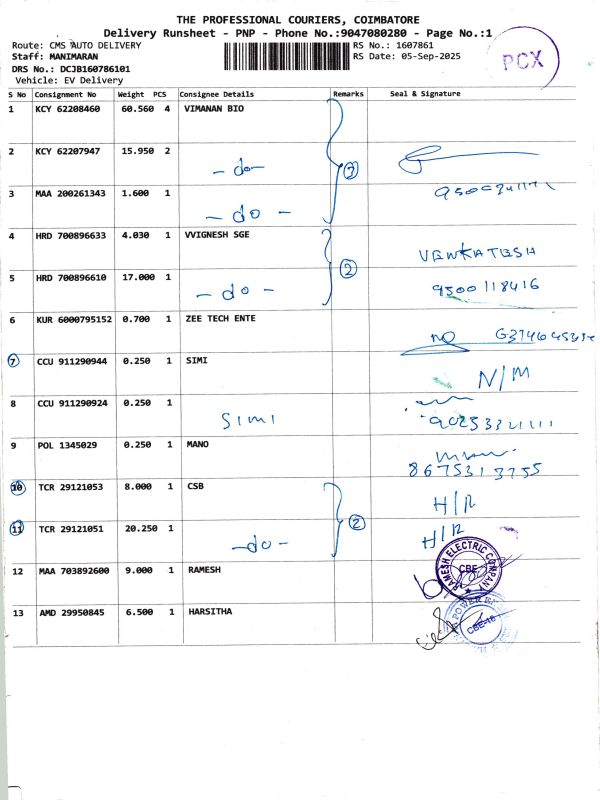 THE PROFESSIONAL COURIERS, COIMBATORE
Delivery Runsheet - PNP - Phone No.:9047080280 - Page No.:1
Route: CMS AUTO DELIVERY RS No.: 1607861
Staff: MANIMARAN RS Date: 05-Sep-2025
PCX
DRS No.: DCJB160786101
Vehicle: EV Delivery
S No Consignment No Weight PCS Consignee Details Remarks Seal & Signature
1 KCY 62208460 60.560 4 VIMANAN BIO
2 KCY 62207947 15.950 2 - do - 3
3 MAA 200261343 1.600 1 - do -
4 HRD 700896633 4.030 1 VVIGNESH SGE VENKATESH
5 HRD 700896610 17.000 1 - do - 2 9500118416
6 KUR 6000795152 0.700 1 ZEE TECH ENTE
7 CCU 911290944 0.250 1 SIMI N/M
8 CCU 911290924 0.250 1 SIMI
9 POL 1345029 0.250 1 MANO 8675313755
10 TCR 29121053 8.000 1 CSB H/R
11 TCR 29121051 20.250 1 - do - 2 H/R
12 MAA 703892600 9.000 1 RAMESH
RAMESH ELECTRIC COMPANY
CBE
13 AMD 29950845 6.500 1 HARSITHA
POWER
CBE-18